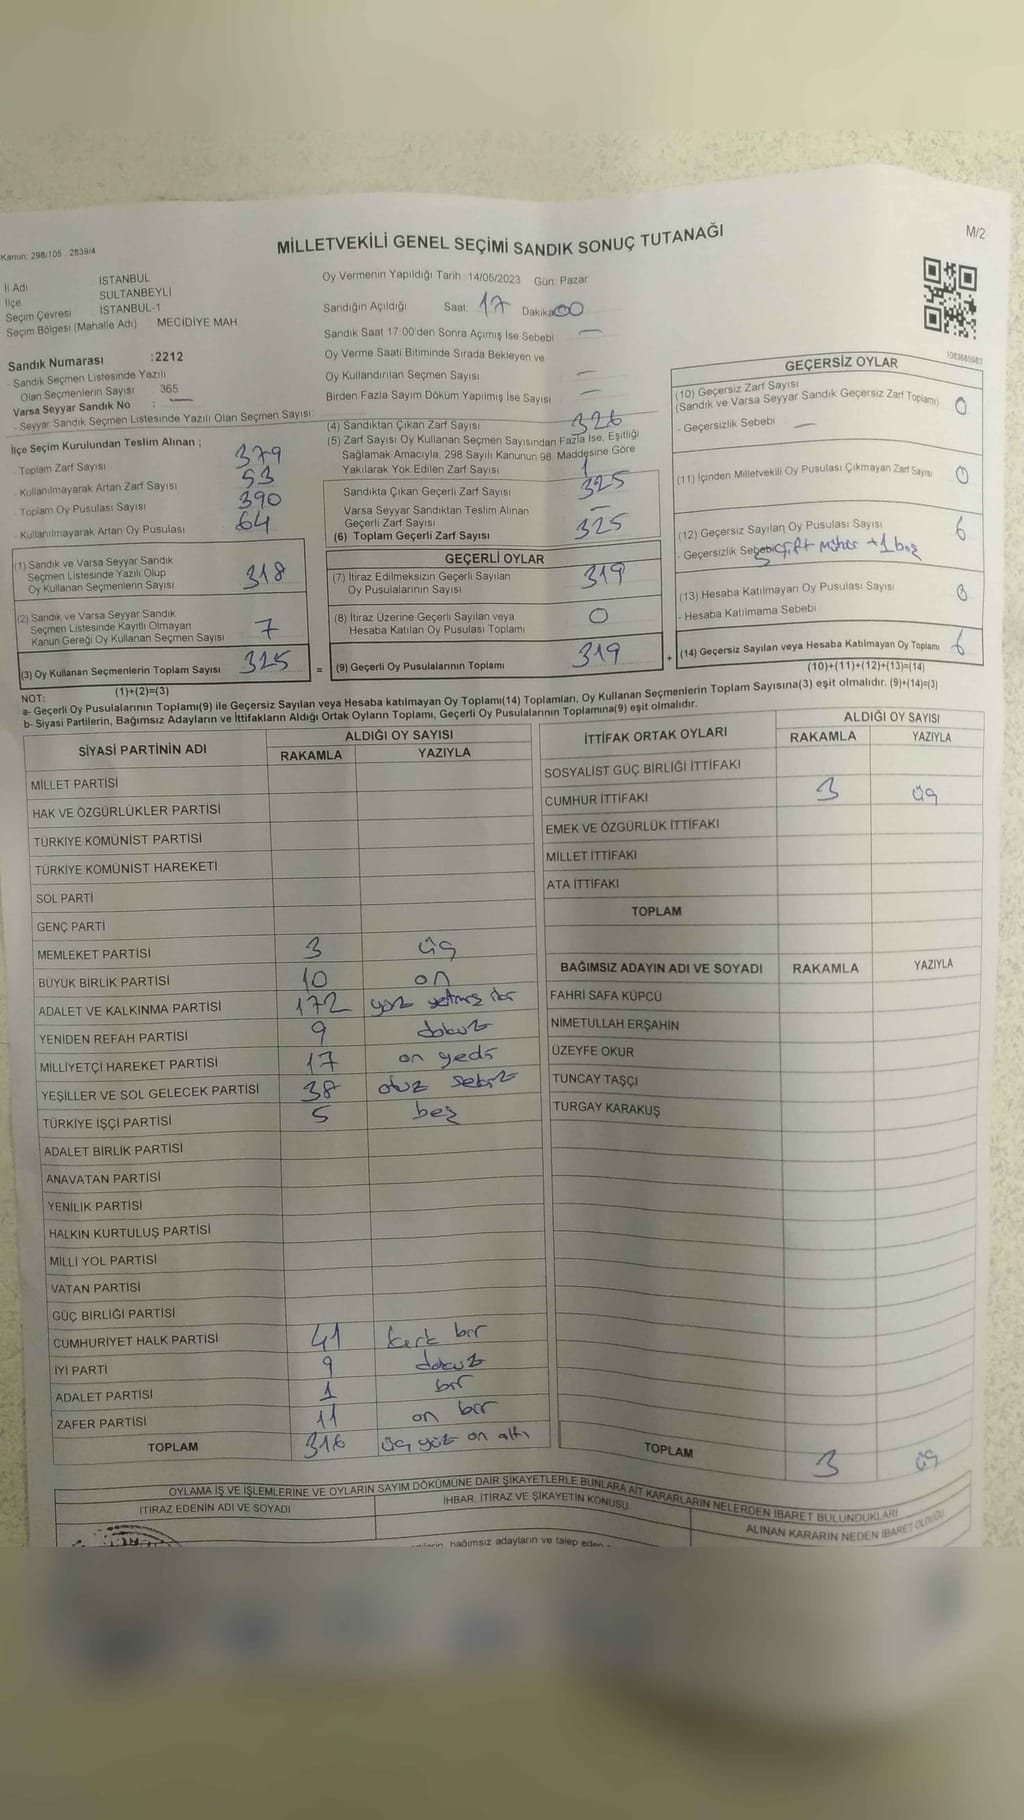 Kanun: 298/105 2839/4
MİLLETVEKİLİ GENEL SEÇİMİ SANDIK SONUÇ TUTANAĞI
M/2
İl Adı İSTANBUL
İlçe SULTANBEYLİ
Seçim Çevresi İSTANBUL-1
Seçim Bölgesi (Mahalle Adı) MECİDİYE MAH
Sandık Numarası :2212
- Sandık Seçmen Listesinde Yazılı
Olan Seçmenlerin Sayısı 365
Varsa Seyyar Sandık No : —
- Seyyar Sandık Seçmen Listesinde Yazılı Olan Seçmen Sayısı:
İlçe Seçim Kurulundan Teslim Alınan ;
- Toplam Zarf Sayısı 379
- Kullanılmayarak Artan Zarf Sayısı 53
- Toplam Oy Pusulası Sayısı 390
- Kullanılmayarak Artan Oy Pusulası 64
(1) Sandık ve Varsa Seyyar Sandık
Seçmen Listesinde Yazılı Olup
Oy Kullanan Seçmenlerin Sayısı 318
(2) Sandık ve Varsa Seyyar Sandık
Seçmen Listesinde Kayıtlı Olmayan
Kanun Gereği Oy Kullanan Seçmen Sayısı 7
(3) Oy Kullanan Seçmenlerin Toplam Sayısı 325
(1)+(2)=(3)
Oy Vermenin Yapıldığı Tarih : 14/05/2023 Gün: Pazar
Sandığın Açıldığı Saat: 17 Dakika: 00
Sandık Saat 17:00'den Sonra Açılmış İse Sebebi —
Oy Verme Saati Bitiminde Sırada Bekleyen ve
Oy Kullandırılan Seçmen Sayısı —
Birden Fazla Sayım Döküm Yapılmış İse Sayısı —
(4) Sandıktan Çıkan Zarf Sayısı 326
(5) Zarf Sayısı Oy Kullanan Seçmen Sayısından Fazla İse, Eşitliği
Sağlamak Amacıyla, 298 Sayılı Kanunun 98. Maddesine Göre
Yakılarak Yok Edilen Zarf Sayısı 1
Sandıkta Çıkan Geçerli Zarf Sayısı 325
Varsa Seyyar Sandıktan Teslim Alınan
Geçerli Zarf Sayısı —
(6) Toplam Geçerli Zarf Sayısı 325
GEÇERLİ OYLAR
(7) İtiraz Edilmeksizin Geçerli Sayılan
Oy Pusulalarının Sayısı 319
(8) İtiraz Üzerine Geçerli Sayılan veya
Hesaba Katılan Oy Pusulası Toplamı 0
= (9) Geçerli Oy Pusulalarının Toplamı 319
1083685983
GEÇERSİZ OYLAR
(10) Geçersiz Zarf Sayısı
(Sandık ve Varsa Seyyar Sandık Geçersiz Zarf Toplamı) 0
- Geçersizlik Sebebi —
(11) İçinden Milletvekili Oy Pusulası Çıkmayan Zarf Sayısı 0
(12) Geçersiz Sayılan Oy Pusulası Sayısı 6
- Geçersizlik Sebebi 5 çift mühür +1 boş
(13) Hesaba Katılmayan Oy Pusulası Sayısı 0
- Hesaba Katılmama Sebebi
+ (14) Geçersiz Sayılan veya Hesaba Katılmayan Oy Toplamı 6
(10)+(11)+(12)+(13)=(14)
NOT:
a- Geçerli Oy Pusulalarının Toplamı(9) ile Geçersiz Sayılan veya Hesaba katılmayan Oy Toplamı(14) Toplamları, Oy Kullanan Seçmenlerin Toplam Sayısına(3) eşit olmalıdır. (9)+(14)=(3)
b- Siyasi Partilerin, Bağımsız Adayların ve İttifakların Aldığı Ortak Oyların Toplamı, Geçerli Oy Pusulalarının Toplamına(9) eşit olmalıdır.
SİYASİ PARTİNİN ADI ALDIĞI OY SAYISI
RAKAMLA YAZIYLA
MİLLET PARTİSİ
HAK VE ÖZGÜRLÜKLER PARTİSİ
TÜRKİYE KOMÜNİST PARTİSİ
TÜRKİYE KOMÜNİST HAREKETİ
SOL PARTİ
GENÇ PARTİ
MEMLEKET PARTİSİ 3 üç
BÜYÜK BİRLİK PARTİSİ 10 on
ADALET VE KALKINMA PARTİSİ 172 yüz yetmiş iki
YENİDEN REFAH PARTİSİ 9 dokuz
MİLLİYETÇİ HAREKET PARTİSİ 17 on yedi
YEŞİLLER VE SOL GELECEK PARTİSİ 38 otuz sekiz
TÜRKİYE İŞÇİ PARTİSİ 5 beş
ADALET BİRLİK PARTİSİ
ANAVATAN PARTİSİ
YENİLİK PARTİSİ
HALKIN KURTULUŞ PARTİSİ
MİLLİ YOL PARTİSİ
VATAN PARTİSİ
GÜÇ BİRLİĞİ PARTİSİ
CUMHURİYET HALK PARTİSİ 41 kırk bir
İYİ PARTİ 9 dokuz
ADALET PARTİSİ 1 bir
ZAFER PARTİSİ 11 on bir
TOPLAM 316 üç yüz on altı
İTTİFAK ORTAK OYLARI ALDIĞI OY SAYISI
RAKAMLA YAZIYLA
SOSYALİST GÜÇ BİRLİĞİ İTTİFAKI
CUMHUR İTTİFAKI 3 üç
EMEK VE ÖZGÜRLÜK İTTİFAKI
MİLLET İTTİFAKI
ATA İTTİFAKI
TOPLAM
BAĞIMSIZ ADAYIN ADI VE SOYADI RAKAMLA YAZIYLA
FAHRİ SAFA KÜPCÜ
NİMETULLAH ERŞAHİN
ÜZEYFE OKUR
TUNCAY TAŞÇI
TURGAY KARAKUŞ
TOPLAM 3 üç
OYLAMA İŞ VE İŞLEMLERİNE VE OYLARIN SAYIM DÖKÜMÜNE DAİR ŞİKAYETLERLE BUNLARA AİT KARARLARIN NELERDEN İBARET BULUNDUKLARI
İTİRAZ EDENİN ADI VE SOYADI
İHBAR, İTİRAZ VE ŞİKAYETİN KONUSU
ALINAN KARARIN NEDEN İBARET OLDUĞU
bağımsız adayların ve talep eden